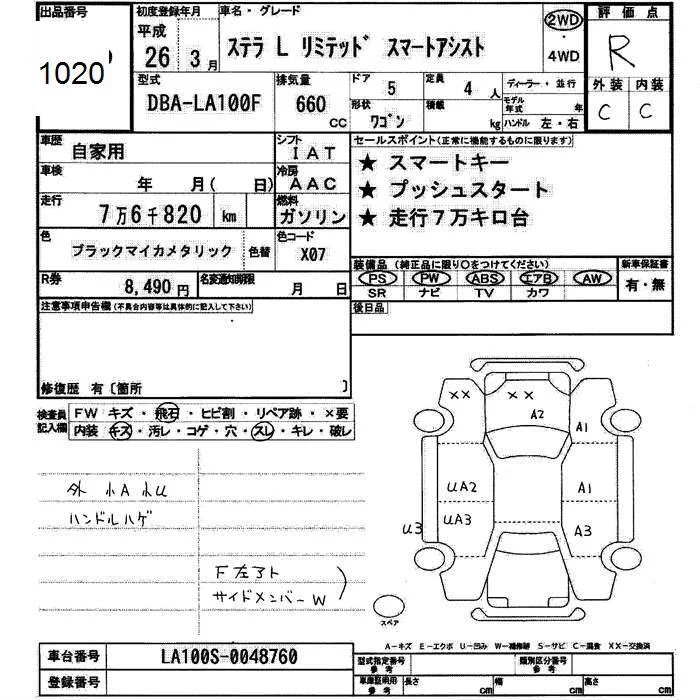 出品番号
1020
初度登録年月
平成
26年 3月
車名・グレード
ステラ L リミテッド スマートアシスト
2WD
・
4WD
評価点
R
外装 内装
C C
型式
DBA-LA100F
排気量
660 CC
ドア 5
定員 4 人
形状 ワゴン
積載 kg
ディーラー・並行
モデル年式 年
ハンドル 左・右
車歴 自家用
シフト IAT
車検 年 月( 日)
冷房 AAC
走行 7万6千820 km
燃料 ガソリン
色 ブラックマイカメタリック 色替
色コード X07
R券 8,490円
名変通知期限 月 日
セールスポイント(正常に機能するものに限ります)
★ スマートキー
★ プッシュスタート
★ 走行7万キロ台
装備品 (純正品に限り○をつけてください)
新車保証書
PS PW ABS エアB AW
SR ナビ TV カワ
有・無
後日品
注意事項申告欄(不具合内容等は具体的に記入して下さい)
修復歴 有〔箇所 〕
検査員記入欄
FW キズ・飛石・ヒビ割・リペア跡・×要
内装 キズ・汚レ・コゲ・穴・スレ・キレ・破レ
外 小A 小U
ハンドルハゲ
F左アト
サイドメンバーW
××
××
A2
A1
UA2
A1
UA3
U3
A3
スペア
A-キズ E-エクボ U-凹み W-補修跡 S-サビ C-腐食 XX-交換済
車台番号 LA100S-0048760
登録番号
型式指定番号 参考
類別区分番号 参考
車庫証明用 参考
長さ cm
幅 cm
高さ cm